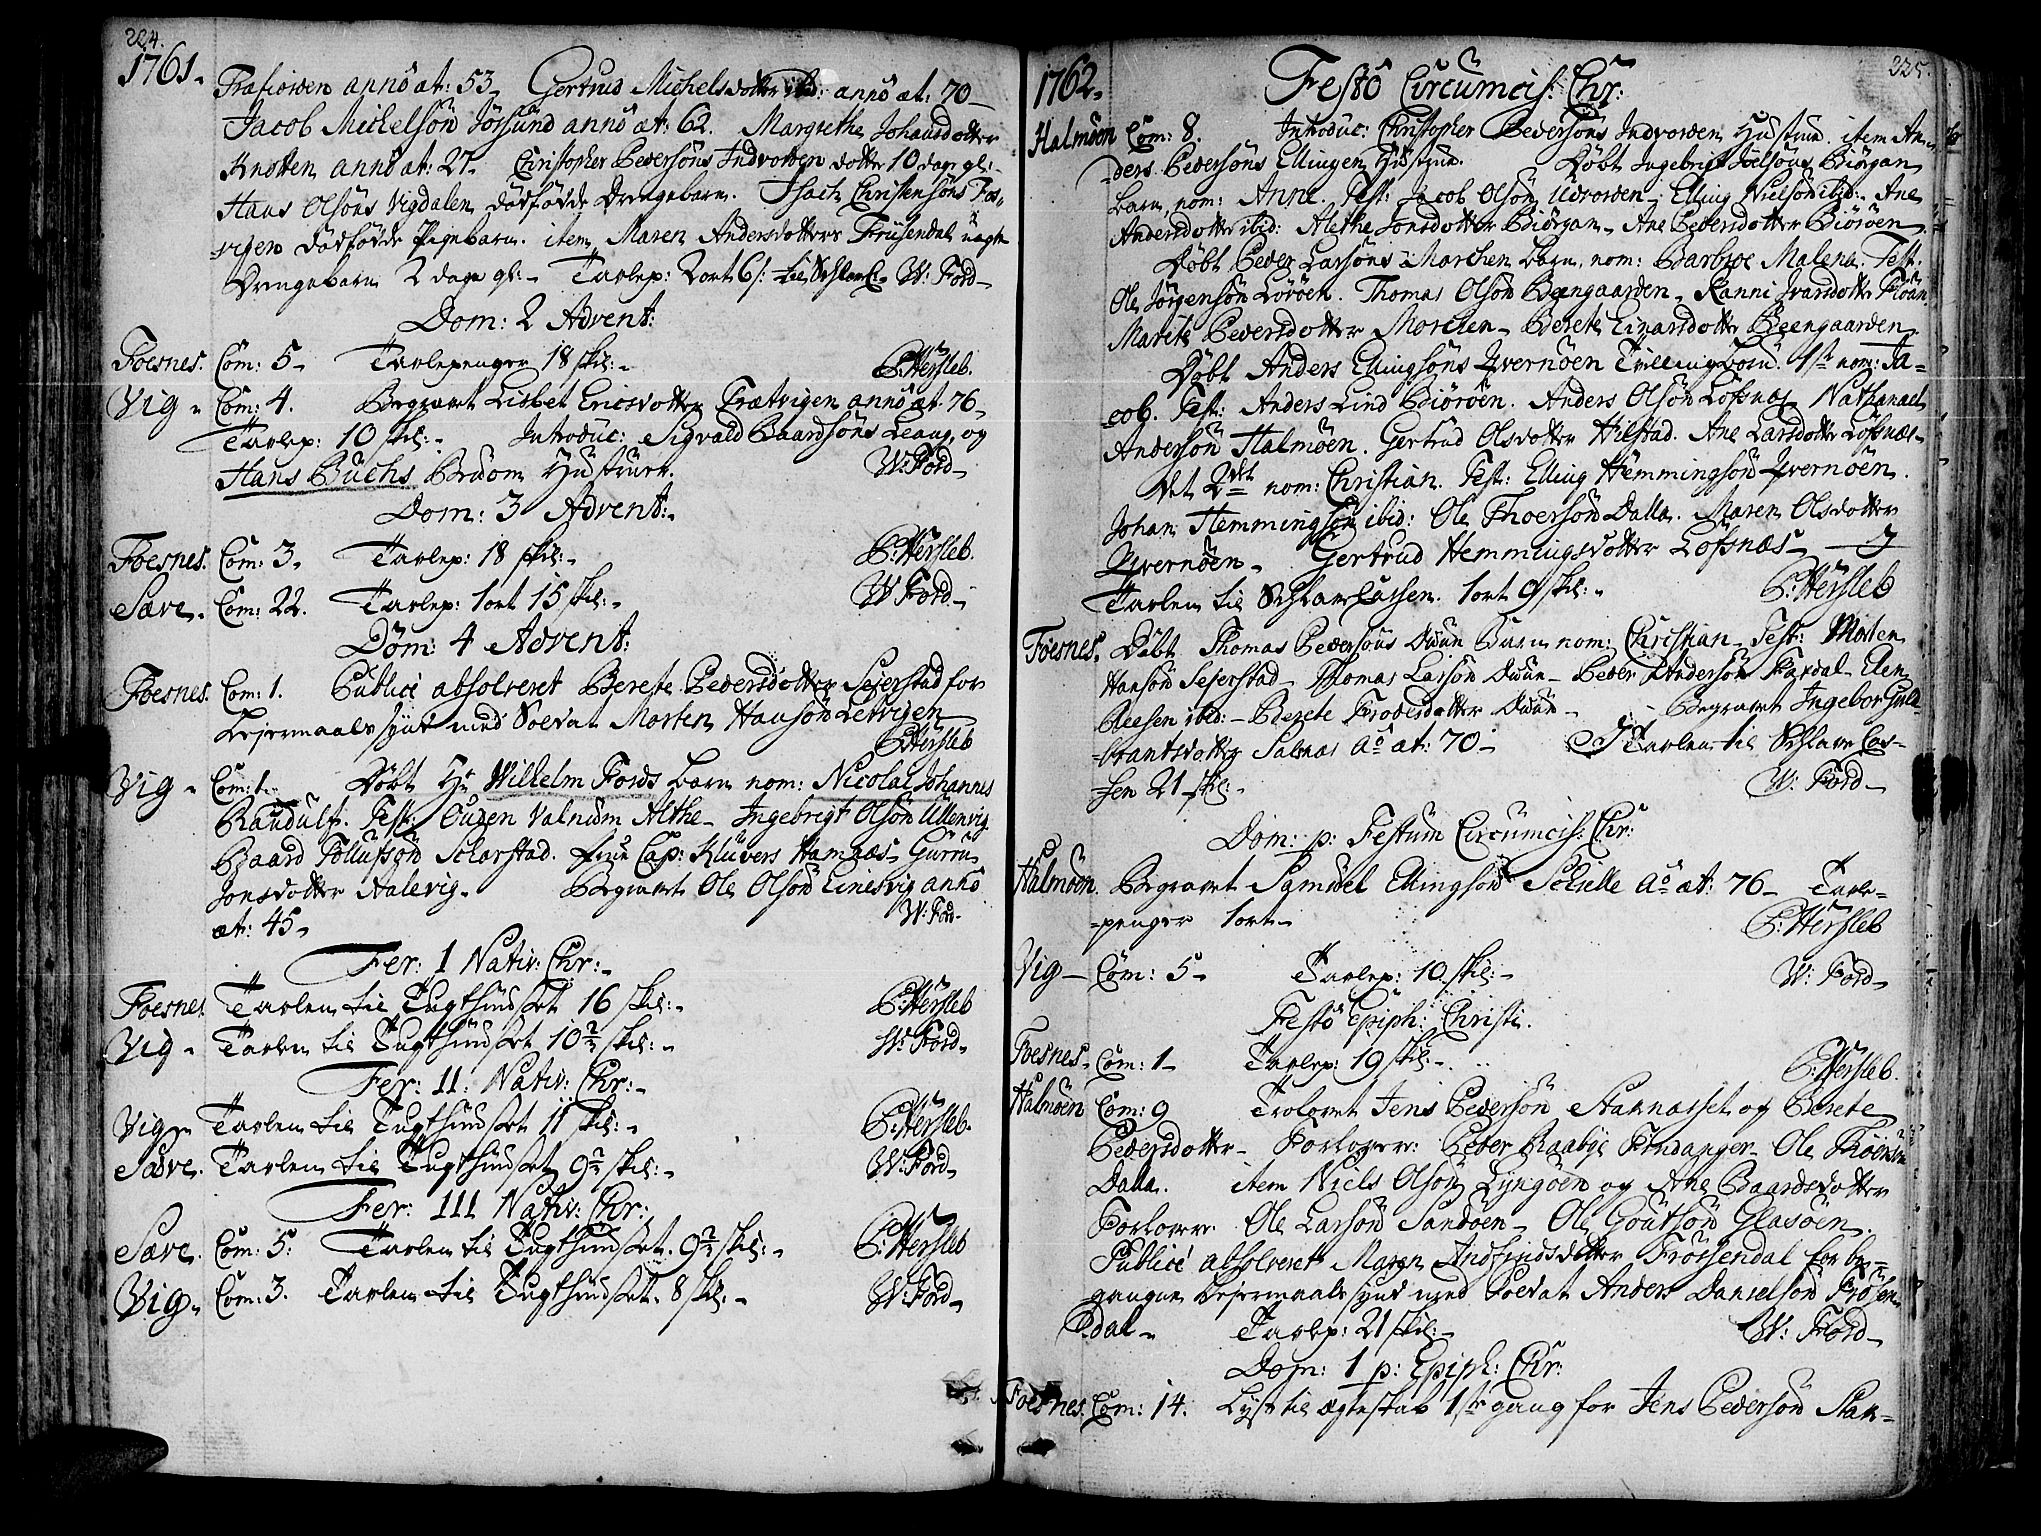 224.
1761.
Trafiorden anno æt: 53. Gertrud Michelsdotter ibid: anno æt: 70
Jacob Michelsön Jörsund anno æt: 62. Margrethe Johansdotter
Knotten anno æt: 27. Christopher Pedersöns Indvorden dotter 10 dage gl:
Hans Olsöns Vigdalen dödfödde Drengebarn. Isach Christensöns Fos-
vigen dödfödde Pigebarn. item Maren Andersdotters Fröisendal uægte
Drengebarn 2 dage gl: Tavlep: 2 ort 6 s: til W: Ford
Dom: 2 Advent:
Foesnes. Com: 5 Tavlepenger 18 skil: P: Hersleb.
Vig Com: 4. Begravet Lisbet Ericsdotter Trætvigen anno æt. 76
Tavlep: 10 skil: Introduc: Sigvald Baardsöns Leang, og
Hans Buchs Hustruer. W: Ford
Dom: 3 Advent:
Foesnes. Com: 3. Tavlep: 18 skil: P: Hersleb.
Sæve. Com: 22. Tavlep: 1 ort 15 skil: W Ford
Dom: 4 Advent:
Foesnes. Com: 1. Publicè absolveret Berete Pedersdotter Sejerstad for
Lejermaals synd med Soldat Morten Hansön Letvigen
P: Hersleb
Vig Com: 1. Döbt Hr Wilhelm Fords barn nom: Nicolai Johannes
Randulf. Test: Ouden Valnum Althe Ingebrigt Olsön Ullenvig
Baard Tollufsön Scharstad. frue Cap: Klüvers Hamnæs Gurru
Jonsdotter Aalevig. Begravet Ole Olsön Linesvig anno
æt: 45 W: Ford
Fer: 1 Nativ: Chr:
Foesnes. Tavlen til Tugthuuset 16 skil: P: Hersleb
Vig Tavlen til Tugthuuset 10½ skil: W: Ford
Fer: 11: Nativ: Chr:
Vig Tavlen til Tugthuuset 11 skil: P: Hersleb.
Sæve. Tavlen til Tugthuuset 9½ skil: W: Ford
Fer: 111 Nativ: Chr:
Sæve. Com: 5: Tavlen til Tugthuuset. 9½ skil: P: Hersleb
Vig Com: 3. Tavlen til Tugthuuset. 8 skil: W: Ford
225.
1762. Festo Circumcis: Chr:
Halmöen Com: 8. Introduc: Christopher Pedersöns Indvorden Hustrue. item An-
ders Pedersöns Ellingen Hustrue. Döbt Ingebrigt Joelsöns Biörgan
barn nom: Anne. Test: Jacob Olsön Udvorden. Elling Nielsön ibid: Ane
Andersdotter ibid: Alethe Jonsdotter Biörgan Ane Pedersdotter Biöröen.
Döbt Peder Larsöns Morchen barn, nom: Barbroe Malena. Test.
Ole Jörgensön Loröen. Thomas Olsön Beengaarden Ranni Ivarsdotter Floan
Marete Pedersdotter Morchen Berete Einarsdotter Beengaarden.
Döbt Anders Ellingsöns Qvernöen Tvillingbörn. 1st nom: Ja-
cob. Test: Anders Lind Biöröen. Anders Olsön Löfsnæs Nathanael
Andersön Halmöen. Gertrud Olsdotter Hilstad. Ane Larsdotter Löfsnæs
det 2det nom: Christian. Test: Elling Hemmingsön Qvernöen.
Johan Hemmingsön ibid: Ole Thoersön Dalla. Maren Olsdotter
Qvernöen Gertrud Hemmingsdotter Löfsnæs
Tavlen til 1 ort 9 skil: P: Hersleb
Foesnes. Döbt Thomas Pedersöns Duun barn nom: Christian Test: Morten
Hansön Sejerstad Thomas Larsön Duun Peder Andersön Fardal
ibid: Berete Duun Begravet Ingebor Guld-
brantsdotter Salnæs Ao æt: 70 Tavlen til
21 skil: W: Ford
Dom: p: Festum Circumcis: Chr:
Halmöen. Begravet Samuel Ellingsön Schielle Ao æt: 76 Tavle-
penger 1 ort P: Hersleb
Vig Com: 5 Tavlep: 10 skil: W: Ford
Festo Epiph: Christi.
Foesnes. Com: 1 Tavlep: 19 skil: P: Hersleb.
Halmöen Com: 9 Trolovet Jens Pedersön og Berete
Pedersdotter Forlover: Peder Raabye Findanger Ole Thoersön
Dalla. item Niels Olsön Lyngöen og Ane Baardsdotter
Forlover: Ole Larsön Sandöen Ole Goutsön Glasöen.
Publicè absolveret Maren Andfindsdotter Fröissendal for be-
gangne Lejermaals synd med Soldat Anders Danielsön Fröisen-
dal Tavlep: 21 skil: W: Ford
Dom: 1 p: Epiph: Chr:
Foesnes. Com: 14. Lyst til ægteskab 1ste gang for Jens Pedersön